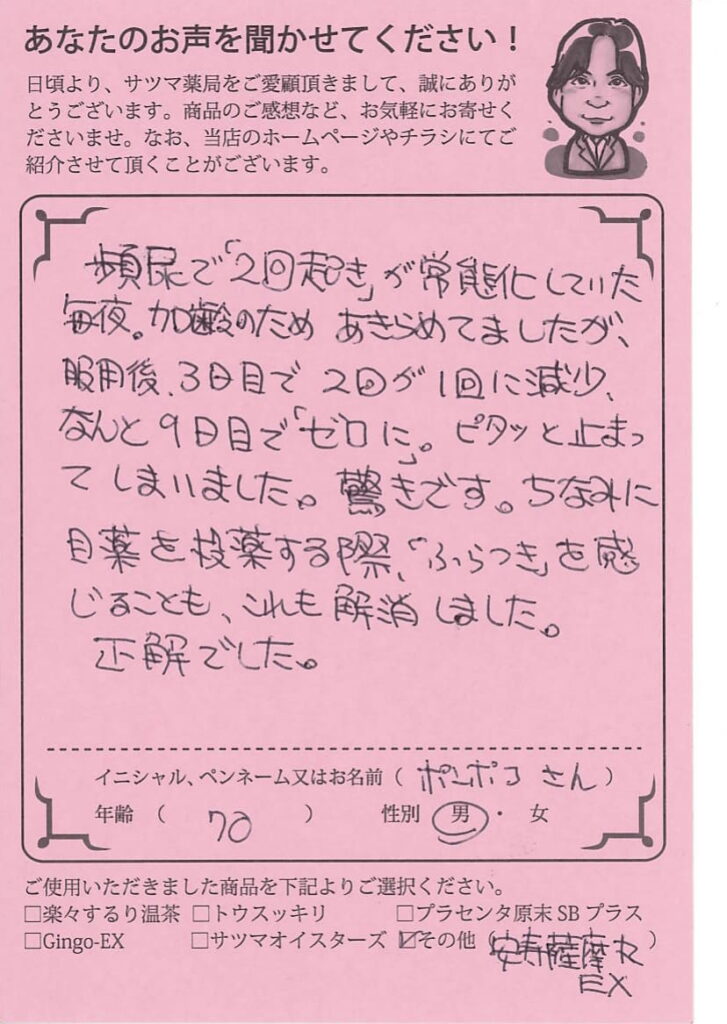 あなたのお声を聞かせてください！
日頃より、サツマ薬局をご愛顧頂きまして、誠にありが
とうございます。商品のご感想など、お気軽にお寄せく
ださいませ。なお、当店のホームページやチラシにてご
紹介させて頂くことがございます。
頻尿で「2回起き」が常態化していた
毎夜。加齢のため あきらめてましたが、
服用後、3日目で 2回が1回に減少、
なんと9日目で「ゼロに」。ピタッと止まっ
てしまいました。驚きです。ちなみに
目薬を投薬する際、「ふらつき」を感
じることも、これも解消しました。
正解でした。
イニシャル、ペンネーム又はお名前（ ポンポコ さん ）
年齢 （ 70 ） 性別 男 ・ 女
ご使用いただきました商品を下記よりご選択ください。
□楽々するり温茶 □トウスッキリ □プラセンタ原末SBプラス
□Gingo-EX □サツマオイスターズ ☑その他（安寿薩摩丸）
EX